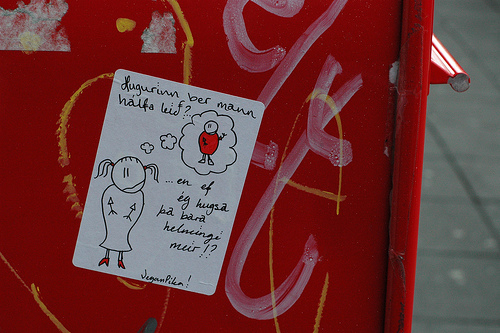 Hugurinn ber mann
hálfa leið?
...en ef
ég hugsa
þá bara
helmingi
meir!?
VeganPika!